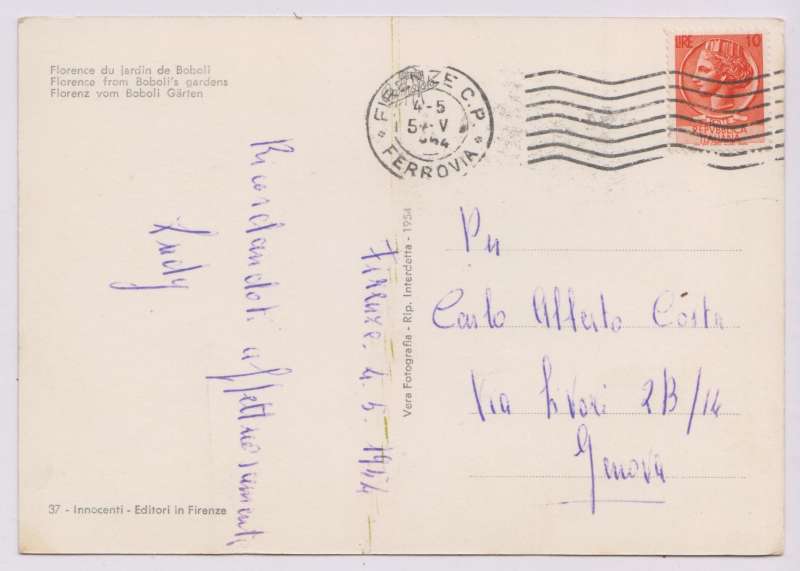 Florence du jardin de Boboli
Florence from Boboli's gardens
Florenz vom Boboli Gärten
FIRENZE C.P.
4-5
FERROVIA
LIRE 10
REPUBBLICA
ITALIANA
Ricordandoti affettuosamente
Firenze. 4. 5. 1954
Vera Fotografia - Rip. Interdetta - 1954
Carlo Alberto Costa
Via 2B/14
Genova
37 - Innocenti - Editori in Firenze